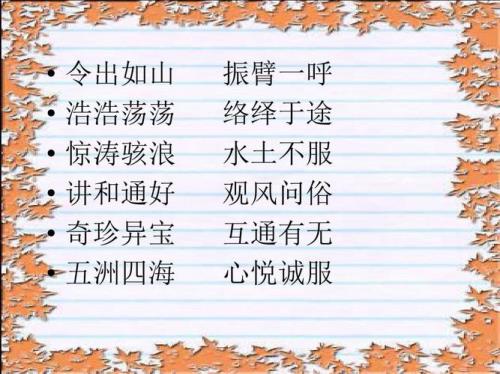 • 令出如山 振臂一呼
• 浩浩荡荡 络绎于途
• 惊涛骇浪 水土不服
• 讲和通好 观风问俗
• 奇珍异宝 互通有无
• 五洲四海 心悦诚服